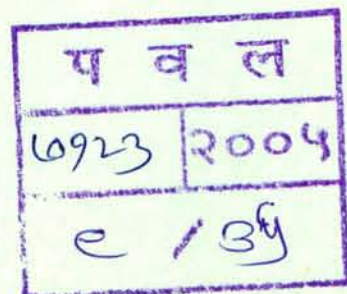 प व ल
७१२३ २००५
९ / ३५